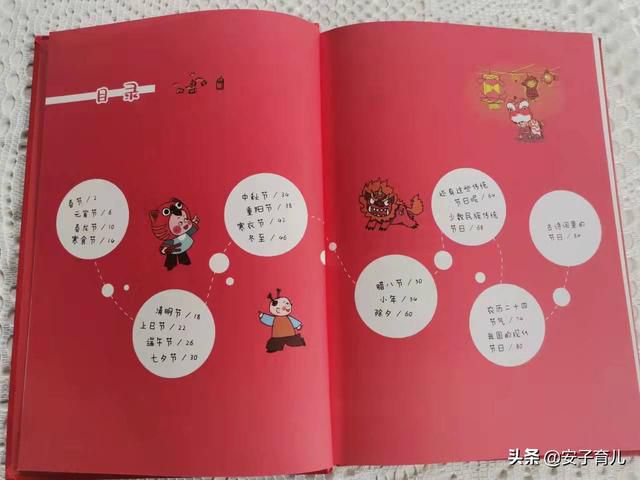 目录
春节 / 2
元宵节 / 6
春龙节 / 10
寒食节 / 14
清明节 / 18
上巳节 / 22
端午节 / 26
七夕节 / 30
中秋节 / 34
重阳节 / 38
寒衣节 / 42
冬至 / 46
腊八节 / 50
小年 / 54
除夕 / 60
还有这些传统
节日呢 / 64
少数民族传统
节日 / 68
农历二十四
节气 / 74
我国的现代
节日 / 80
古诗词里的
节日 / 84
头条 @安子育儿